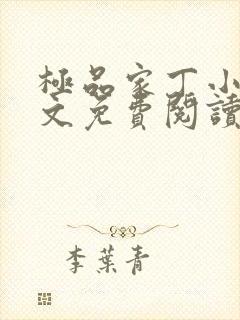 極品家丁小
文免費閱讀
李葉青